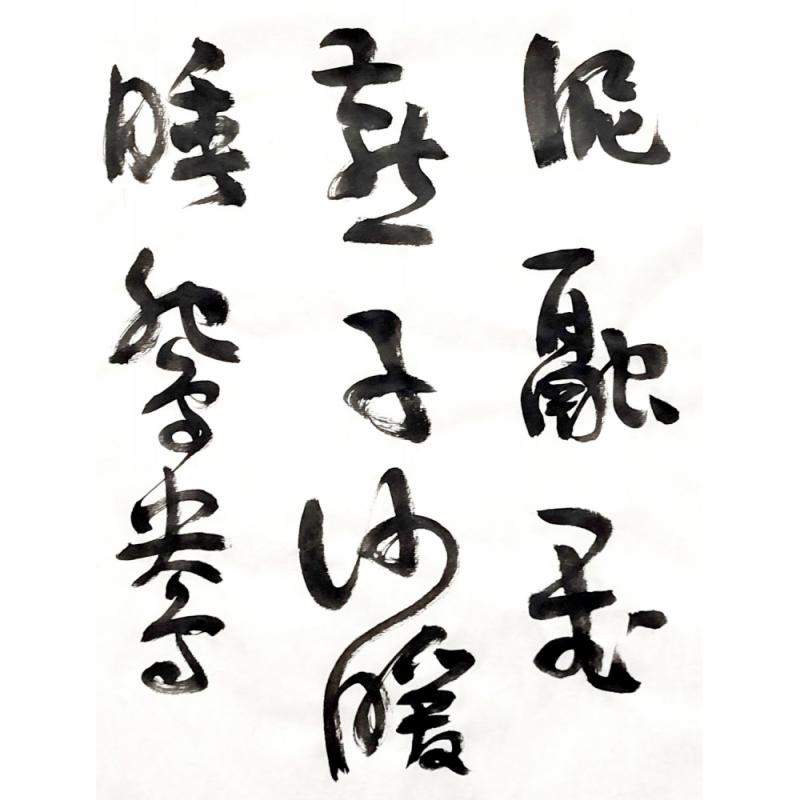 泥融飛
燕子沙暖
睡鴛鴦